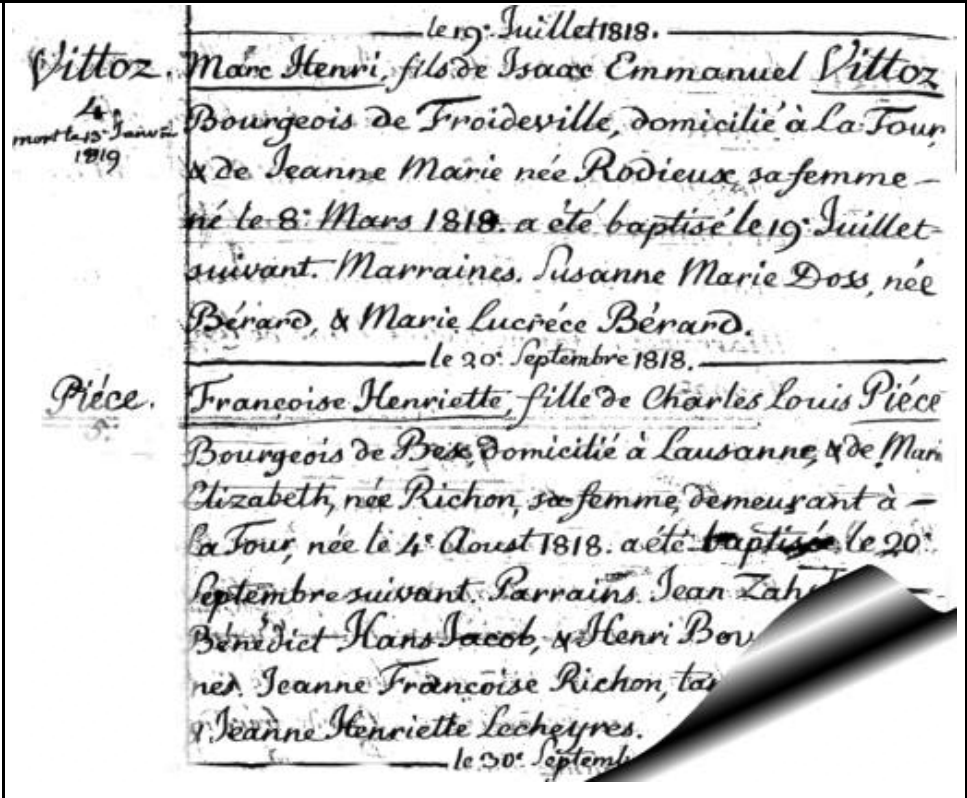 le 19e. Juillet 1818.
Vittoz. Marc Henri, fils de Isaac Emmanuel Vittoz
4. Bourgeois de Froideville, domicilié à La Tour,
mort le 13e Janvier
1819
& de Jeanne Marie née Rodieux, sa femme –
né le 8e. Mars 1818. a été baptisé le 19e. Juillet
suivant. Marraines. Susanne Marie Doxs, née
Bérard, & Marie Lucréce Bérard.
le 20e. Septembre 1818.
Piéce. Françoise Henriette, fille de Charles Louis Piéce
5.
Bourgeois de Bex, domicilié à Lausanne, & de Marie
Elizabeth, née Richon, sa femme, demeurant à –
La Tour, née le 4e. Aoust 1818. a été baptisée le 20e.
Septembre suivant. Parrains. Jean
Bénédict Hans Jacob, & Henri
nes. Jeanne Françoise Richon,
& Jeanne Henriette Lecheyres.
le 30e. Septemb